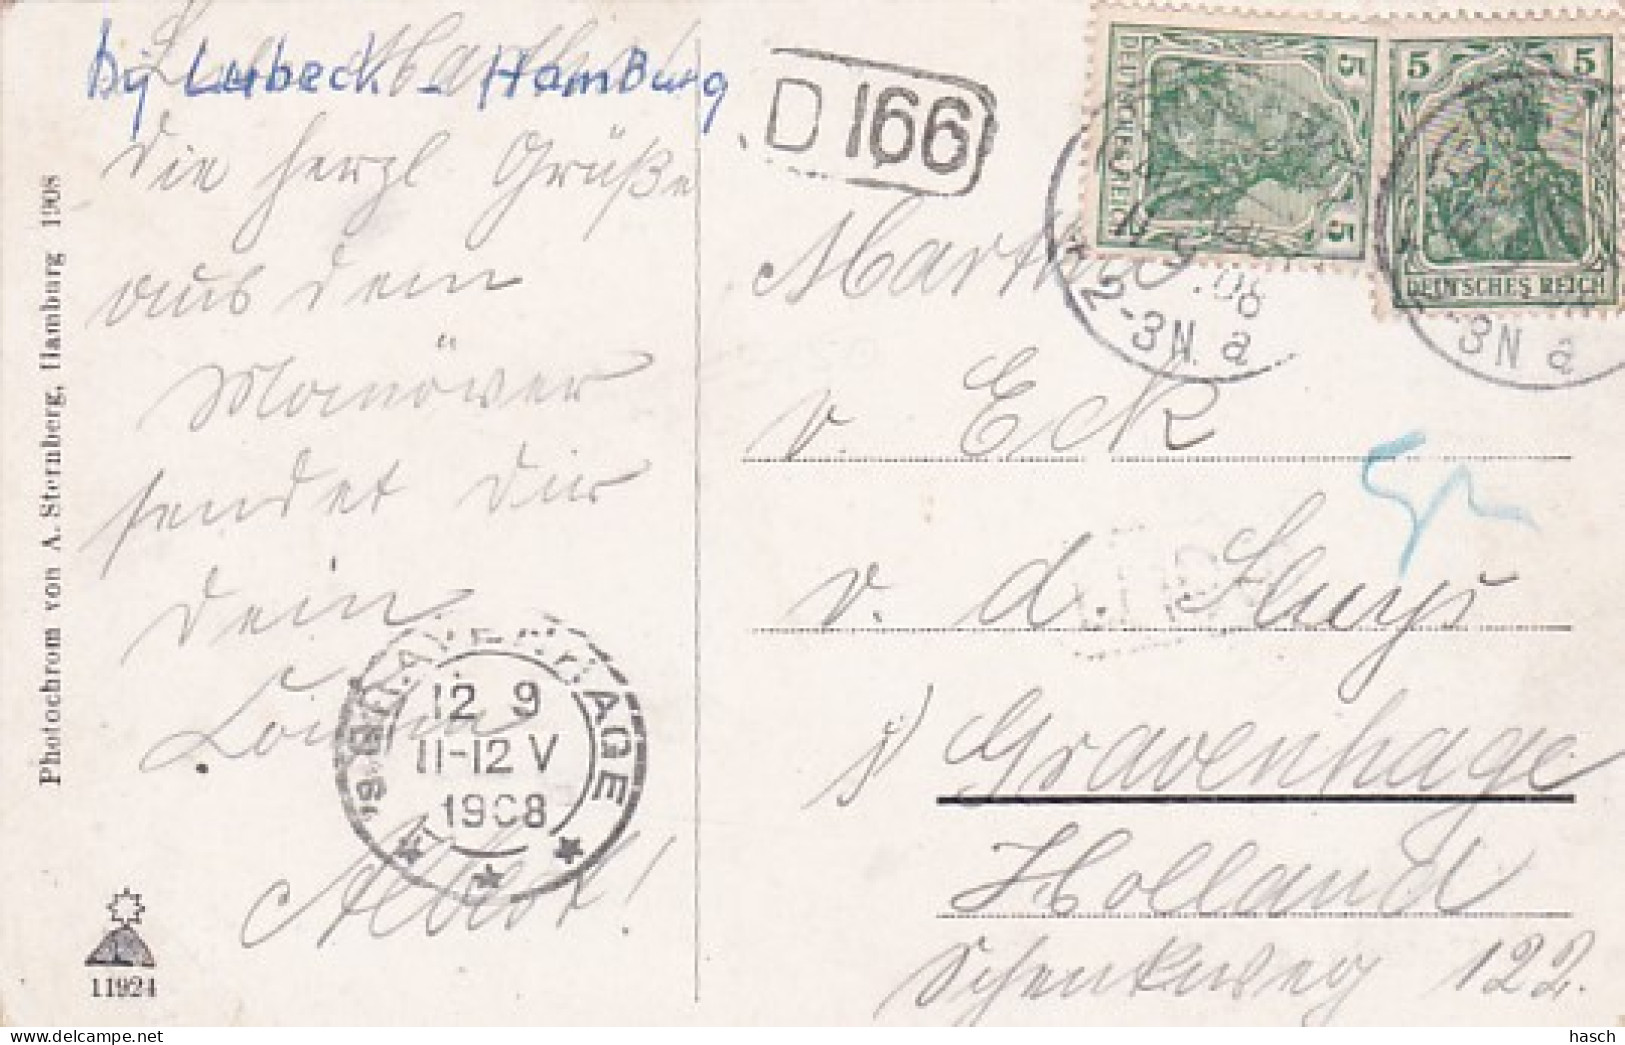 by Lubeck - Hamburg
die herzl Grüße
aus dem
Manöver
sendet dir
dein
Albert!
Photochrom von A. Sternberg, Hamburg 1908
11924
'S-GRAVENHAGE
12 9
11-12 V
1908
D 166
DEUTSCHES REICH
5
5
5 5
DEUTSCHES REICH
.08
2-3N. a
-3N a
Martha
v. Eck
v. d. Sluys
s' Gravenhage
Holland
Schenkweg 122.
hasch